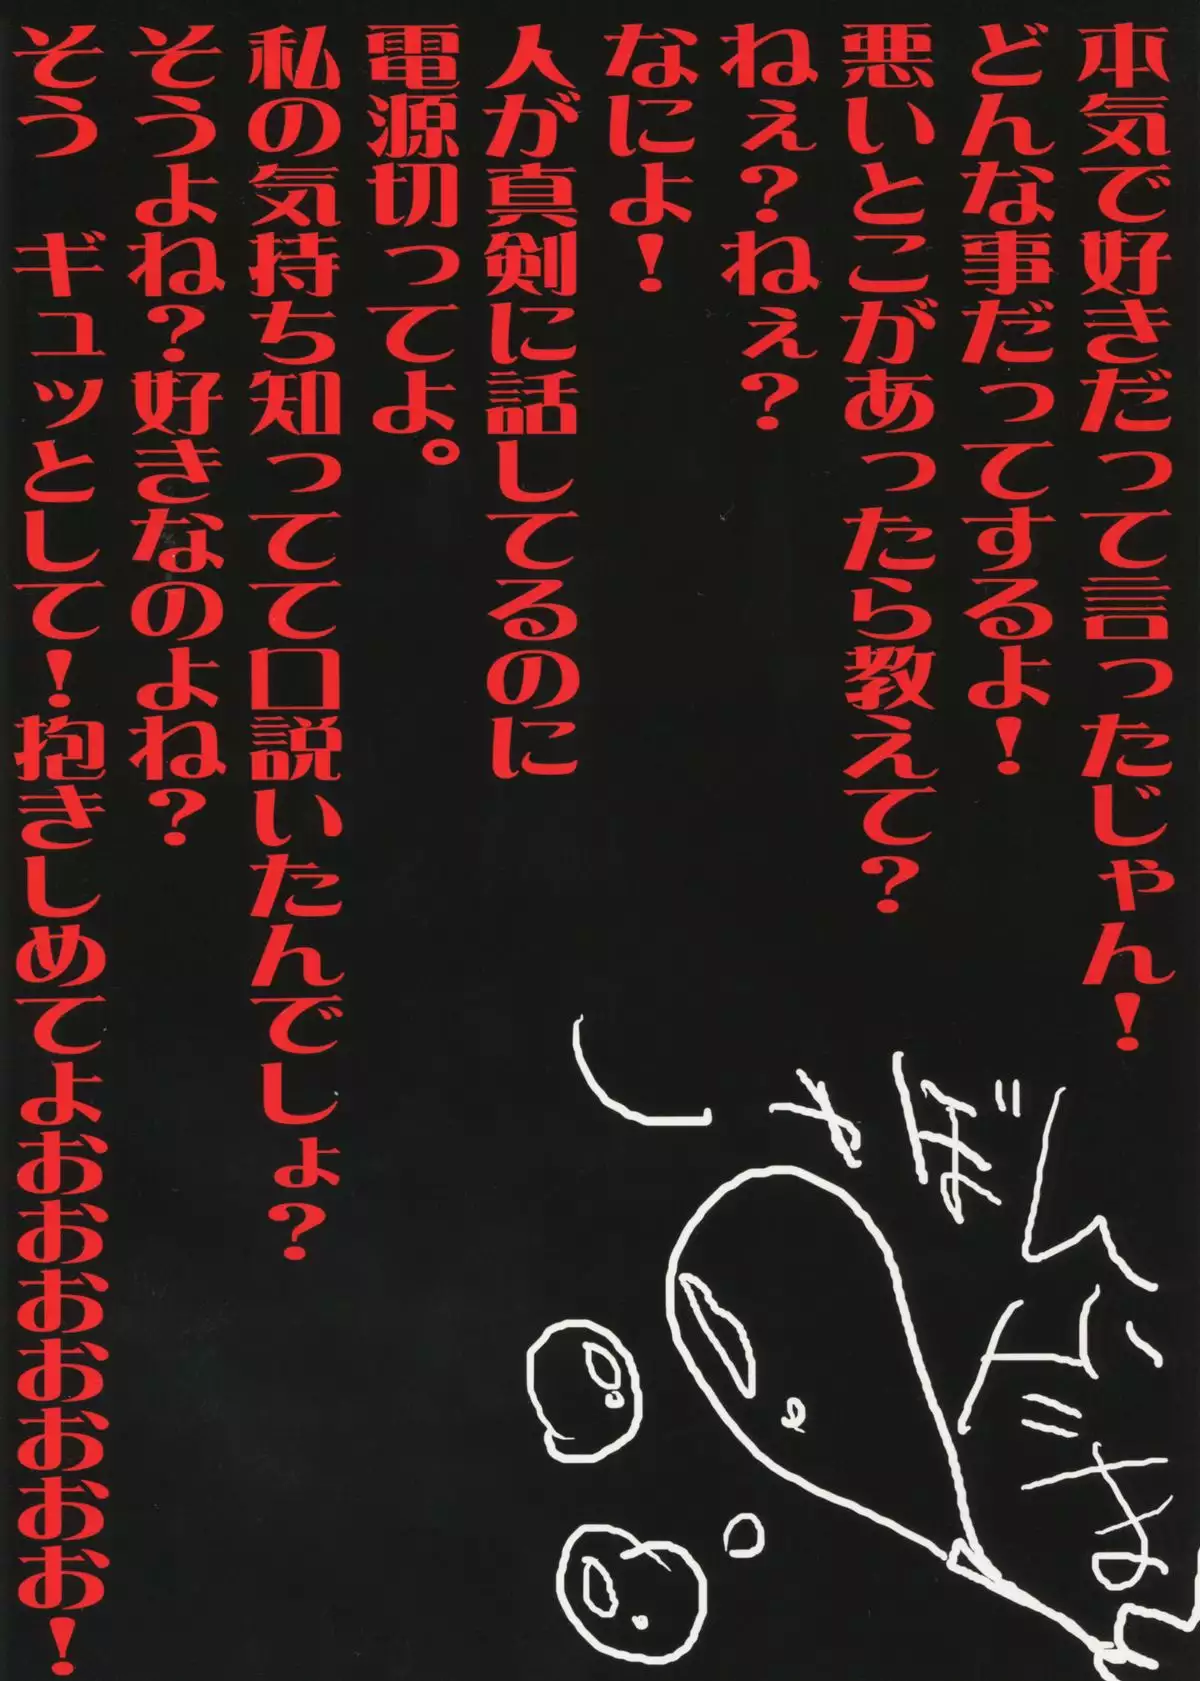 本気で好きだって言ったじゃん！
どんな事だってするよ！
悪いとこがあったら教えて？
ねぇ？ねぇ？
なによ！
人が真剣に話してるのに
電源切ってよ。
私の気持ち知ってて口説いたんでしょ？
そうよね？好きなのよね？
そう　ギュッとして！抱きしめてよおおおおおおお！